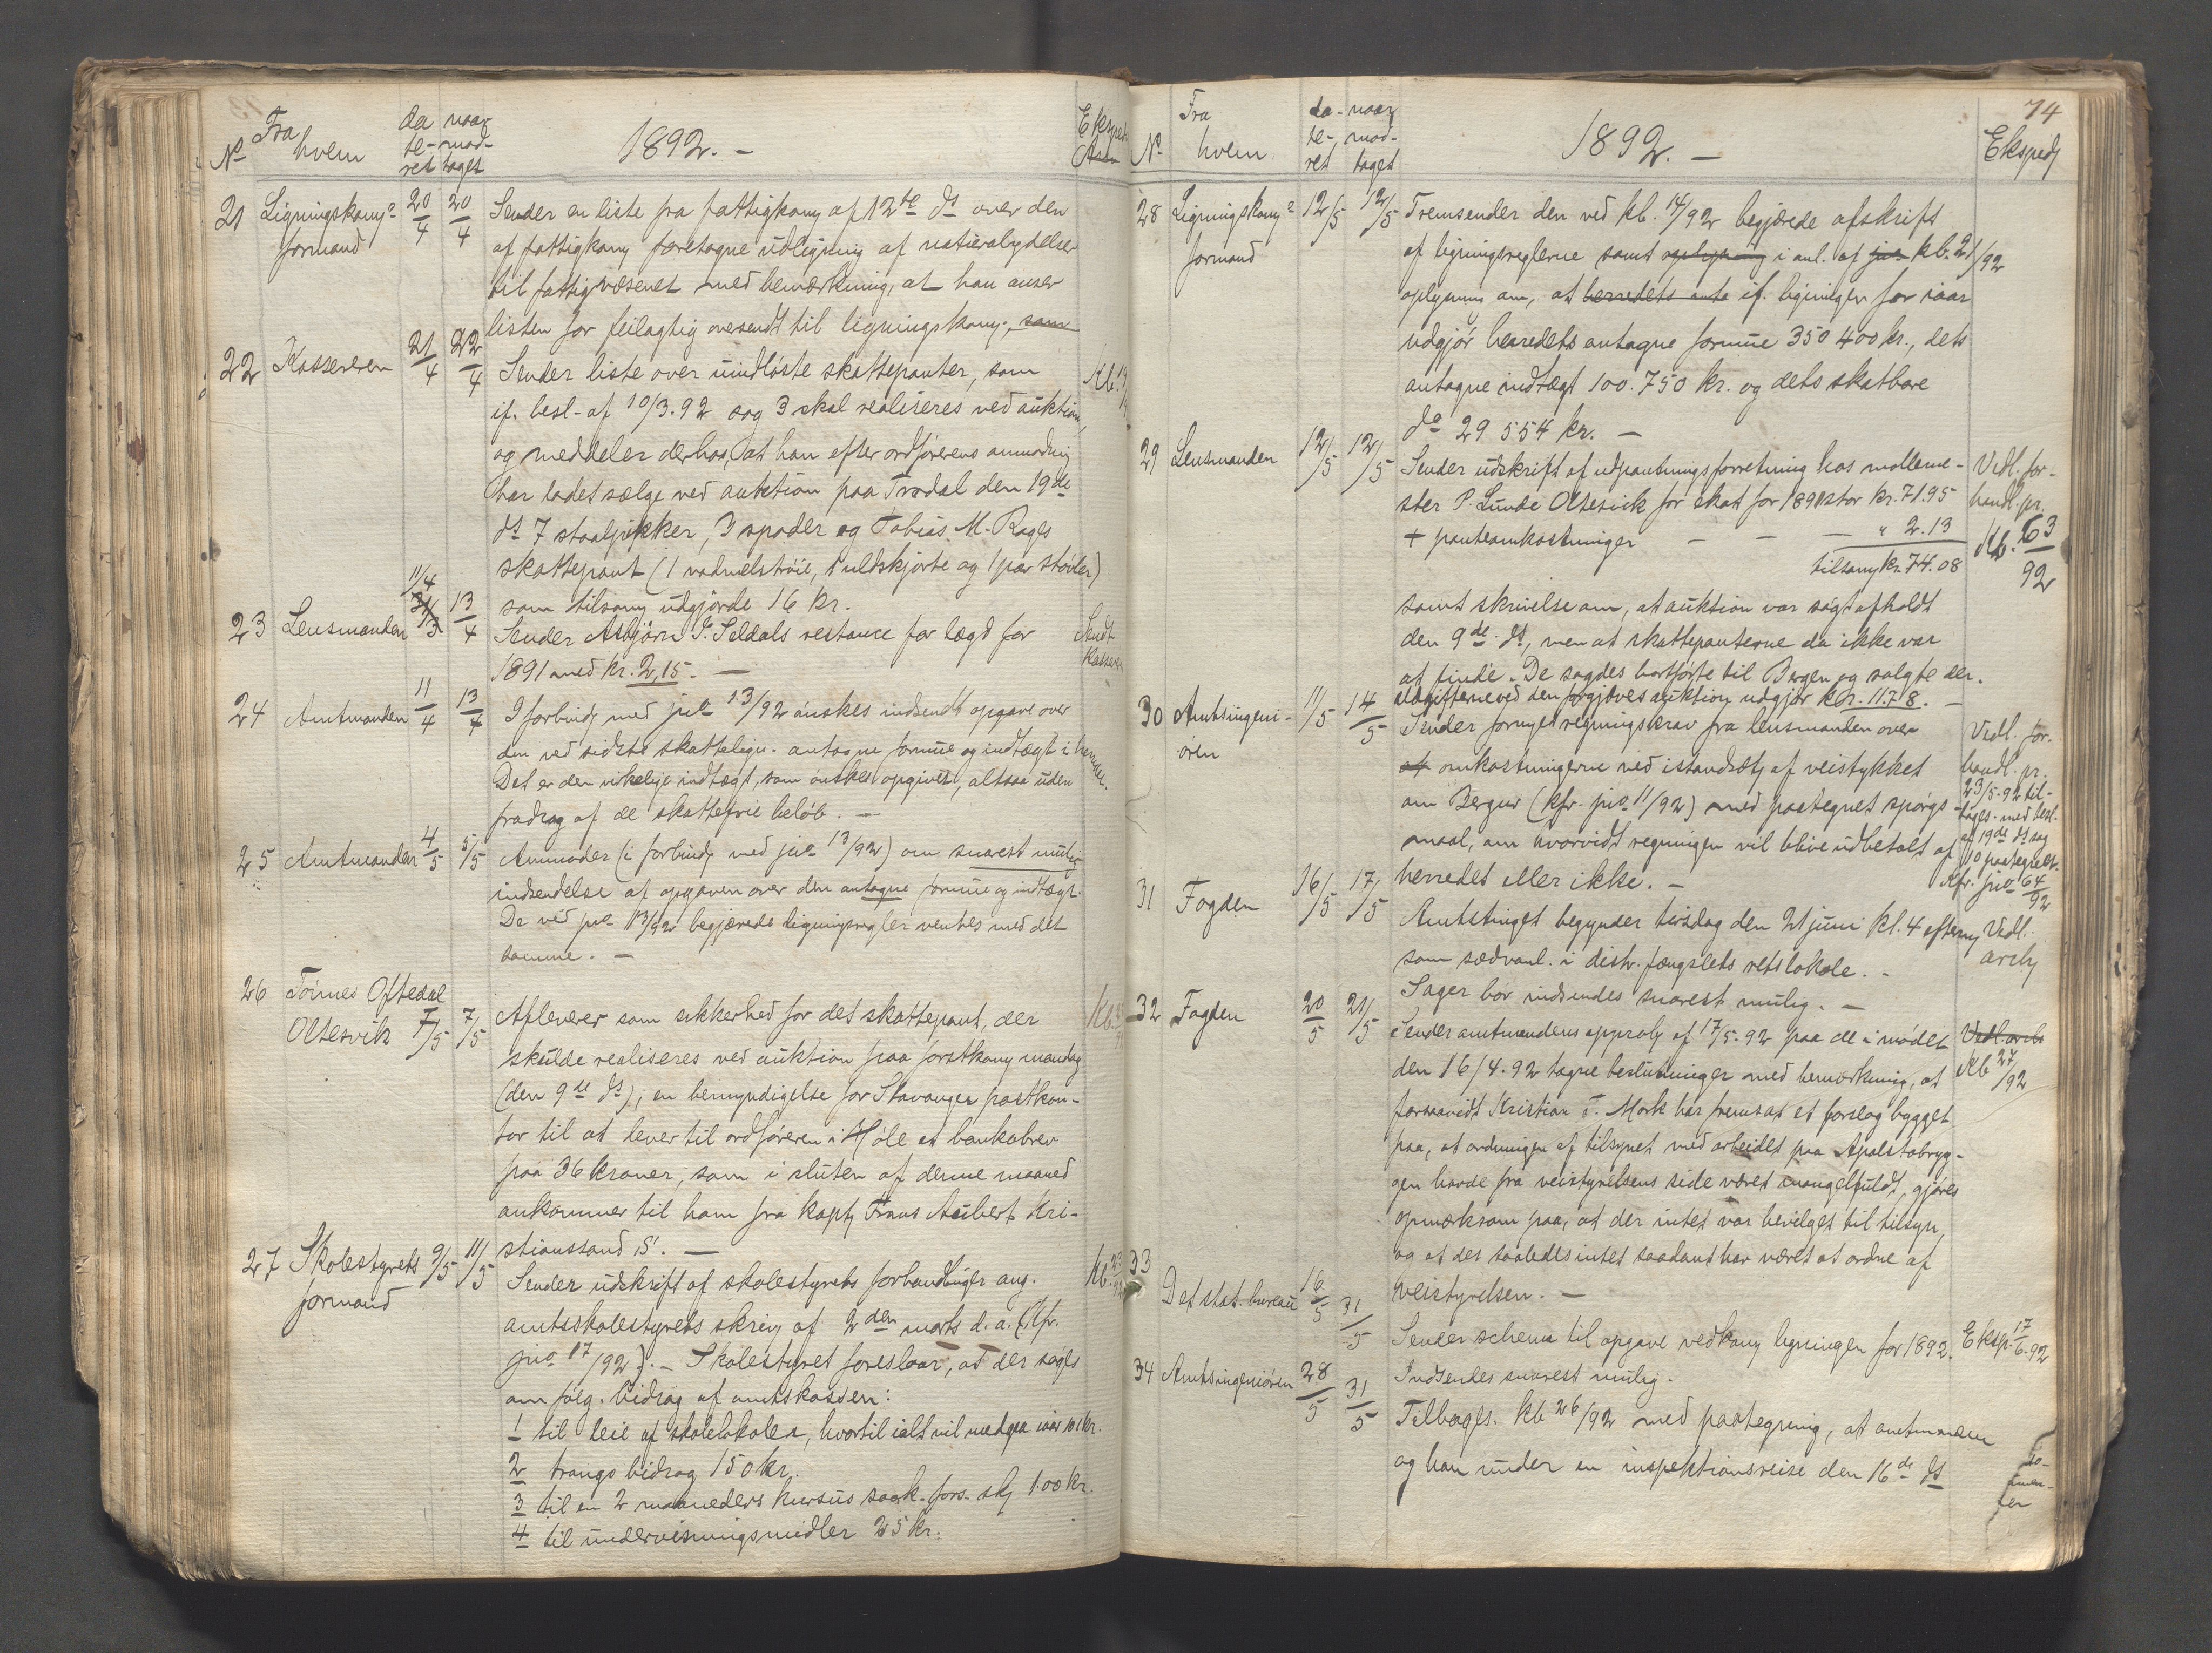 No Fra hvem da te- ret naar mod- taget 1892. - Eksped
21 Ligningskomms formand 20/4 20/4 Sender en liste fra fattigkomm af 12te ds over den
af fattigkomm foretagne udligning af naturalydelser
til fattigvæsenet med bemærkning, at han anser
listen for feilagtig oversendt til ligningskomm., som
22 Kassereren 21/4 22/4 Sender liste over uindløste skattepanter, som
if. besl. af 10/3.92 sag 3 skal realiseres ved auktion,
og meddeler derhos, at han efter ordførerens anmodning
har ladet sælge ved auktion paa Frodal den 19de
ds 7 staalpikker, 3 spader og Tobias M. Rages
skattepant (1 vadmelstrøie, 1 uldskjorte og 1 par støvler)
som tilsamm udgjorde 16 kr.
23 Lensmanden 11/4 31/3 13/4 Sender Asbjørn J. Seldals restance for lægd for
1891 med kr. 2,15. - Sendt Kasserer
24 Amtmanden 11/4 13/4 I forbind. med jno 13/92 ønskes indsendt opgave over
den ved sidste skattelign. antagne formue og indtægt i herredet.
Det er den virkelige indtægt, som ønskes opgivet, altsaa uden
fradrag af de skattefrie beløb. -
25 Amtmanden 4/5 5/5 Anmoder (i forbind. med jno 13/92) om snarest mulig
indsendelse af opgaven over den antagne formue og indtægt.
De ved jno 13/92 begjærede ligningsregler ventes med det
samme. -
26 Tønnes Oftedal
Oltesvik 7/5 7/5 Afleverer som sikkerhed for det skattepant, der
skulde realiseres ved auktion paa førstkomm mandag
(den 9de ds), en bemyndigelse for Stavanger postkon-
tor til at lever til ordføreren i Høle et bankobrev
paa 36 kroner, som i sluten af denne maaned
ankommer til ham fra kapt. Frans Aubert Kri-
stianssand S. -
27 Skolestyrets formand 9/5 11/5 Sender udskrift af skolestyrets forhandlinger ang.
amtsskolestyrets skriv. af 2den marts d. a. (Kfr.
jno 17/92). - Skolestyret foreslaar, at der søges
om følg. bidrag af amtskassen:
1 til leie af skolelokaler, hvortil ialt vil medgaa iaar 101 kr.
2 trangs bidrag 150 kr.
3 til en 2 maaneders kursus 100 kr.
4 til undervisningsmidler 25 kr.
74
No Fra hvem da- te- ret naar mod- taget 1892. - Eksped
28 Ligningskomms formand 12/5 12/5 Fremsender den ved kb. 14/92 begjærede afskrift
af ligningsreglerne samt oplysning i anl. af jno kb. 21/92
oplysning om, at herredets anta if. ligningen for iaar
udgjør herredets antagne formue 350 400 kr., dets
antagne indtægt 100.750 kr. og dets skatbare
do 29 554 kr. -
29 Lensmanden 12/5 12/5 Sender udskrift af udpantningsforretning hos møllerme-
ster P. Lunde Oltesvik for skat for 1891 stor kr. 71.95
+ panteomkostninger - - - " 2.13
tilsamm kr. 74.08
Vedl. for-
handl. pr.
Kb. 63/92
samt skrivelse om, at auktion var søgt afholdt
den 9de ds, men at skattepanterne da ikke var
at finde. De sagdes bortførte til Bergen og solgte der.
Udgifterne ved den forgjæves auktion udgjør kr. 11.78. -
30 Amtsingeni-
øren 11/5 14/5 Sender fornyet regningskrav fra lensmanden over
omkostningerne ved istandsætt. af veistykket
om Bergur (kfr. jno 11/92) med paategnet spørgs-
maal, om hvorvidt regningen vil blive udbetalt af
herredet eller ikke. -
Vedl. for-
handl. pr.
23/5.92 til-
bages. med besl.
af 19de ds sag
10 paategnet.
Kfr. jno 64/92
31 Fogden 16/5 17/5 Amtstinget begynder tirsdag den 21 juni kl. 4 efterm
som sædvanl. i distr. fængslets retslokale. -
Sager bør indsendes snarest mulig. -
Vedl. ark
32 Fogden 20/5 21/5 Sender amtmandens approb. af 17/5.92 paa de i mødet
den 16/4.92 tagne beslutninger med bemærkning, at
forsaavidt Kristian T. Mork har fremsat et forslag bygget
paa, at ordningen af tilsynet med arbeidet paa Apalstøbryg-
gen havde fra veistyrelsens side været mangelfuldt, gjøres
opmærksom paa, at der intet var bevilget til tilsyn,
og at der saaledes intet saadant har været at ordne af
veistyrelsen. -
Vedl. ark
Kb 27/92
33 Det stat. bureau 16/5 31/5 Sender schema til opgave vedkomm ligningen for 1892.
Indsendes snarest mulig.
Eksp. 17/6.92
34 Amtsingeniøren 28/5 31/5 Tilbages. kb 26/92 med paategning, at amtmanden
og han under en inspektionsreise den 16de ds